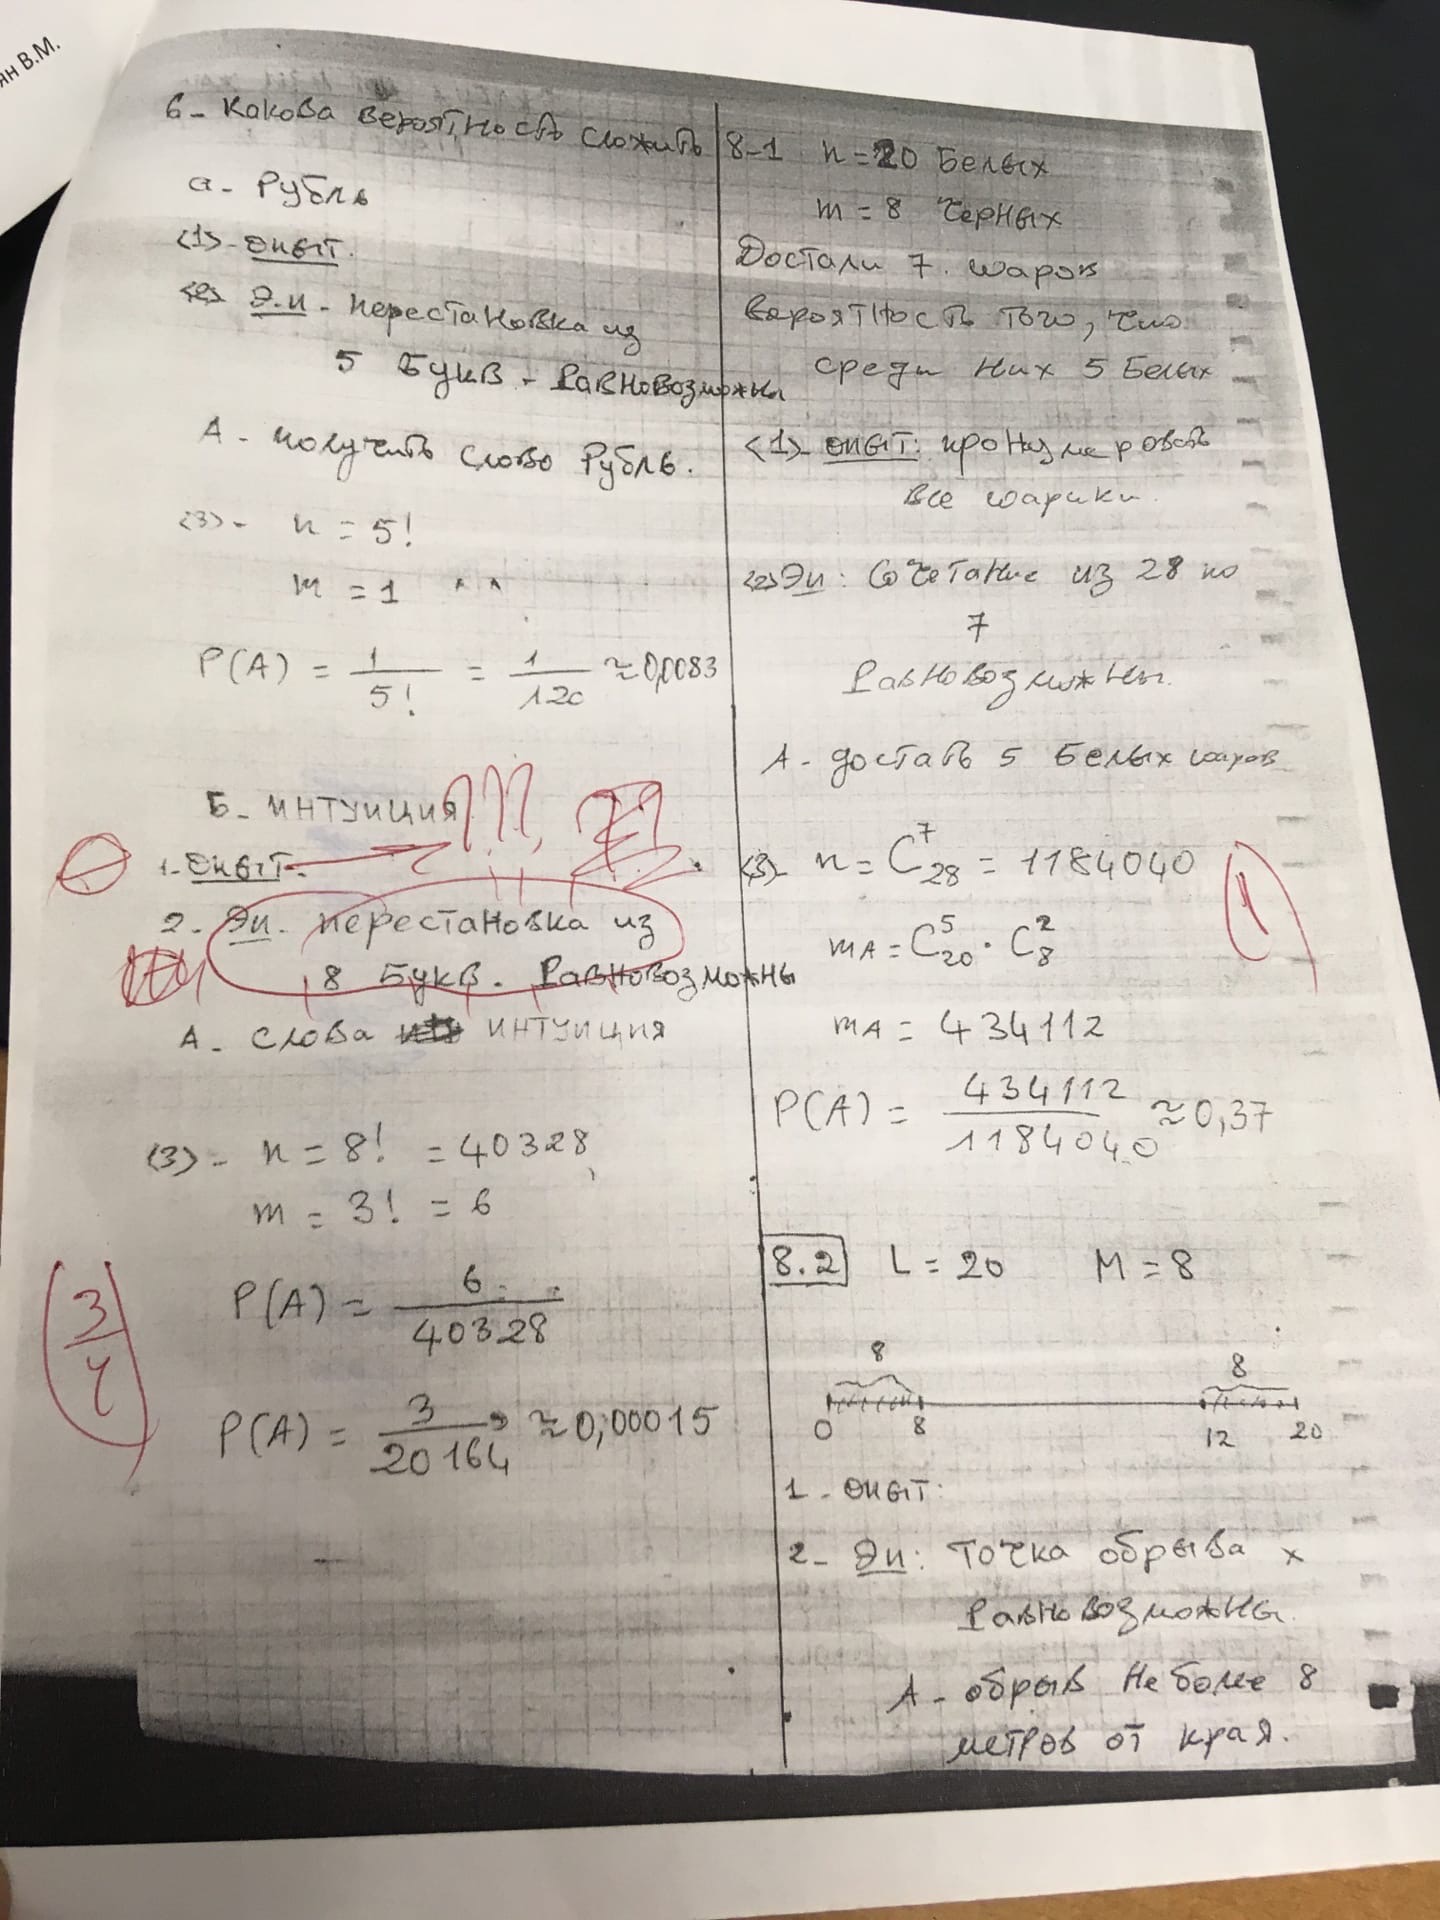 ян В.М.
6- Какова вероятность сложить
а- Рубль
<1>- опыт.
<2> Э.и - перестановка из
5 букв - равновозможны
А - получить слово Рубль.
<3>- n = 5!
m = 1
P(A) = 1/5! = 1/120 ≈ 0,0083
Б- ИНТУИЦИЯ
1- опыт-
2- Эи. перестановка из
8 букв. равновозможны
А- слова ИНТУИЦИЯ
(3)- n = 8! = 40328
m = 3! = 6
P(A) = 6/40328
P(A) = 3/20164 ≈ 0,00015
3/4
8-1 n = 20 Белых
m = 8 черных
Достали 7. шаров
вероятность того, что
среди них 5 белых
<1>- опыт: пронумеровать
все шарики.
<2> Эи: Сочетание из 28 по
7
равновозможны.
А- достать 5 белых шаров
(3)- n = C⁷₂₈ = 1184040
1
mА = C⁵₂₀ · C²₈
mА = 434112
P(A) = 434112/1184040 ≈ 0,37
8.2 L = 20 M = 8
8 8
0 8 12 20
1 - опыт:
2- Эи: точка обрыва x
равновозможны.
А- обрыв не более 8
метров от края.